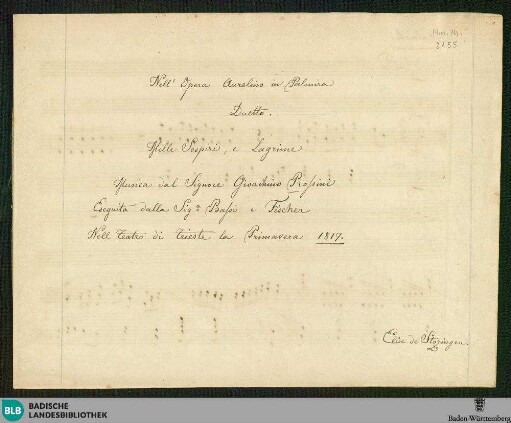 Mus. Hs.
2155
Nell' Opera Aureliano in Palmira
Duetto.
Mille Sospiri, e Lagrime
Musica dal Signore Gioachino Rossini
Eseguita dalla Sig.ra Bassi e Fischer
Nell Teatro di Trieste la Primavera 1817.
Elise de Stozingen.
BLB BADISCHE
LANDESBIBLIOTHEK
Baden-Württemberg